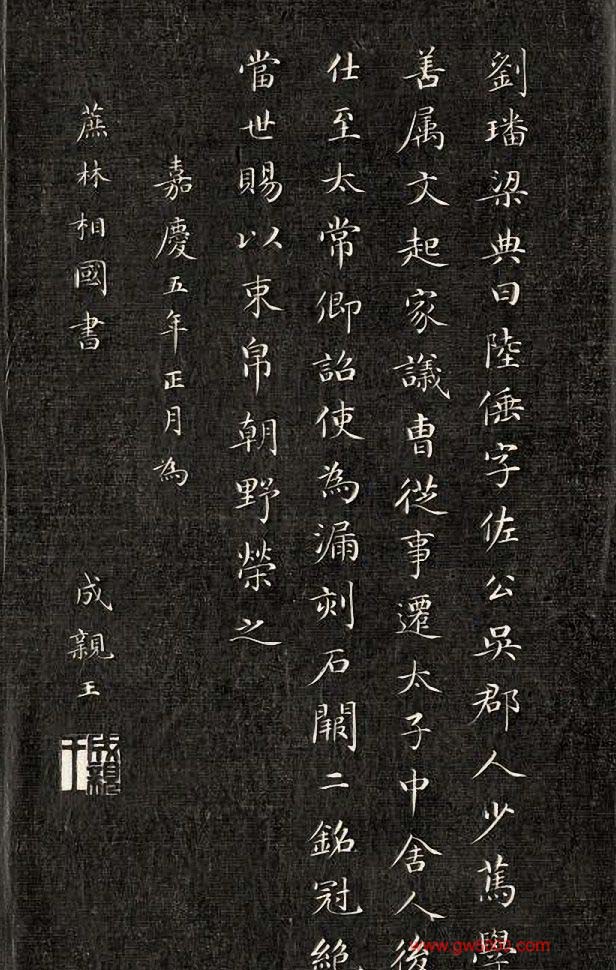 劉璠梁典曰陸倕字佐公吳郡人少篤學
善属文起家議曹從事遷太子中舍人後
仕至太常卿詔使為漏刻石闕二銘冠絶
當世賜以束帛朝野榮之
嘉慶五年正月為
蔗林相國書
成親王
成親王
www.gw5000.com